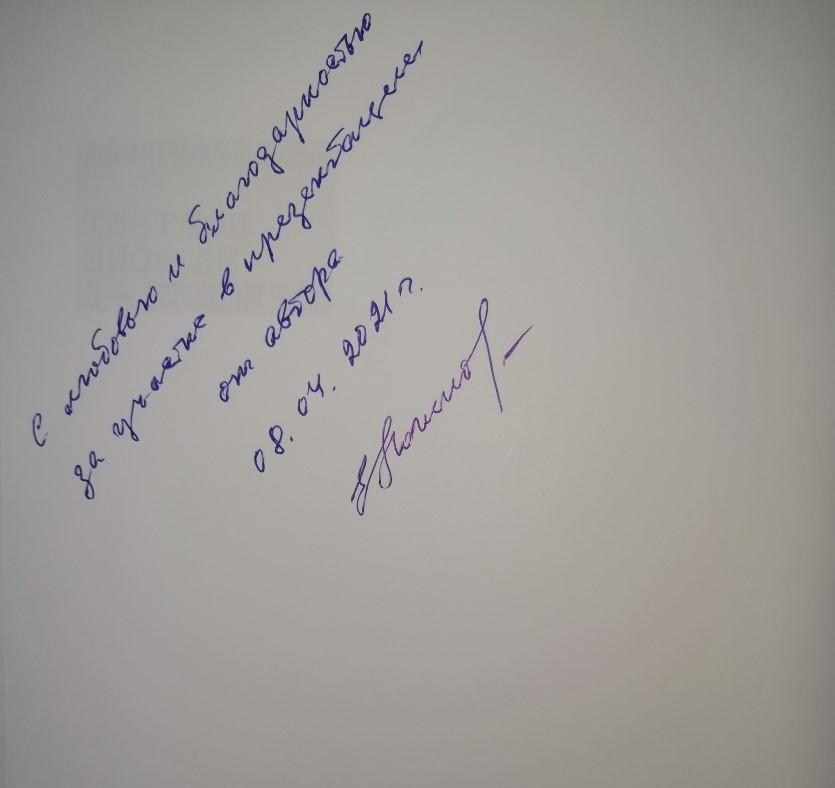 С любовью и благодарностью
за участие в презентации
от автора
08.04.2021 г.